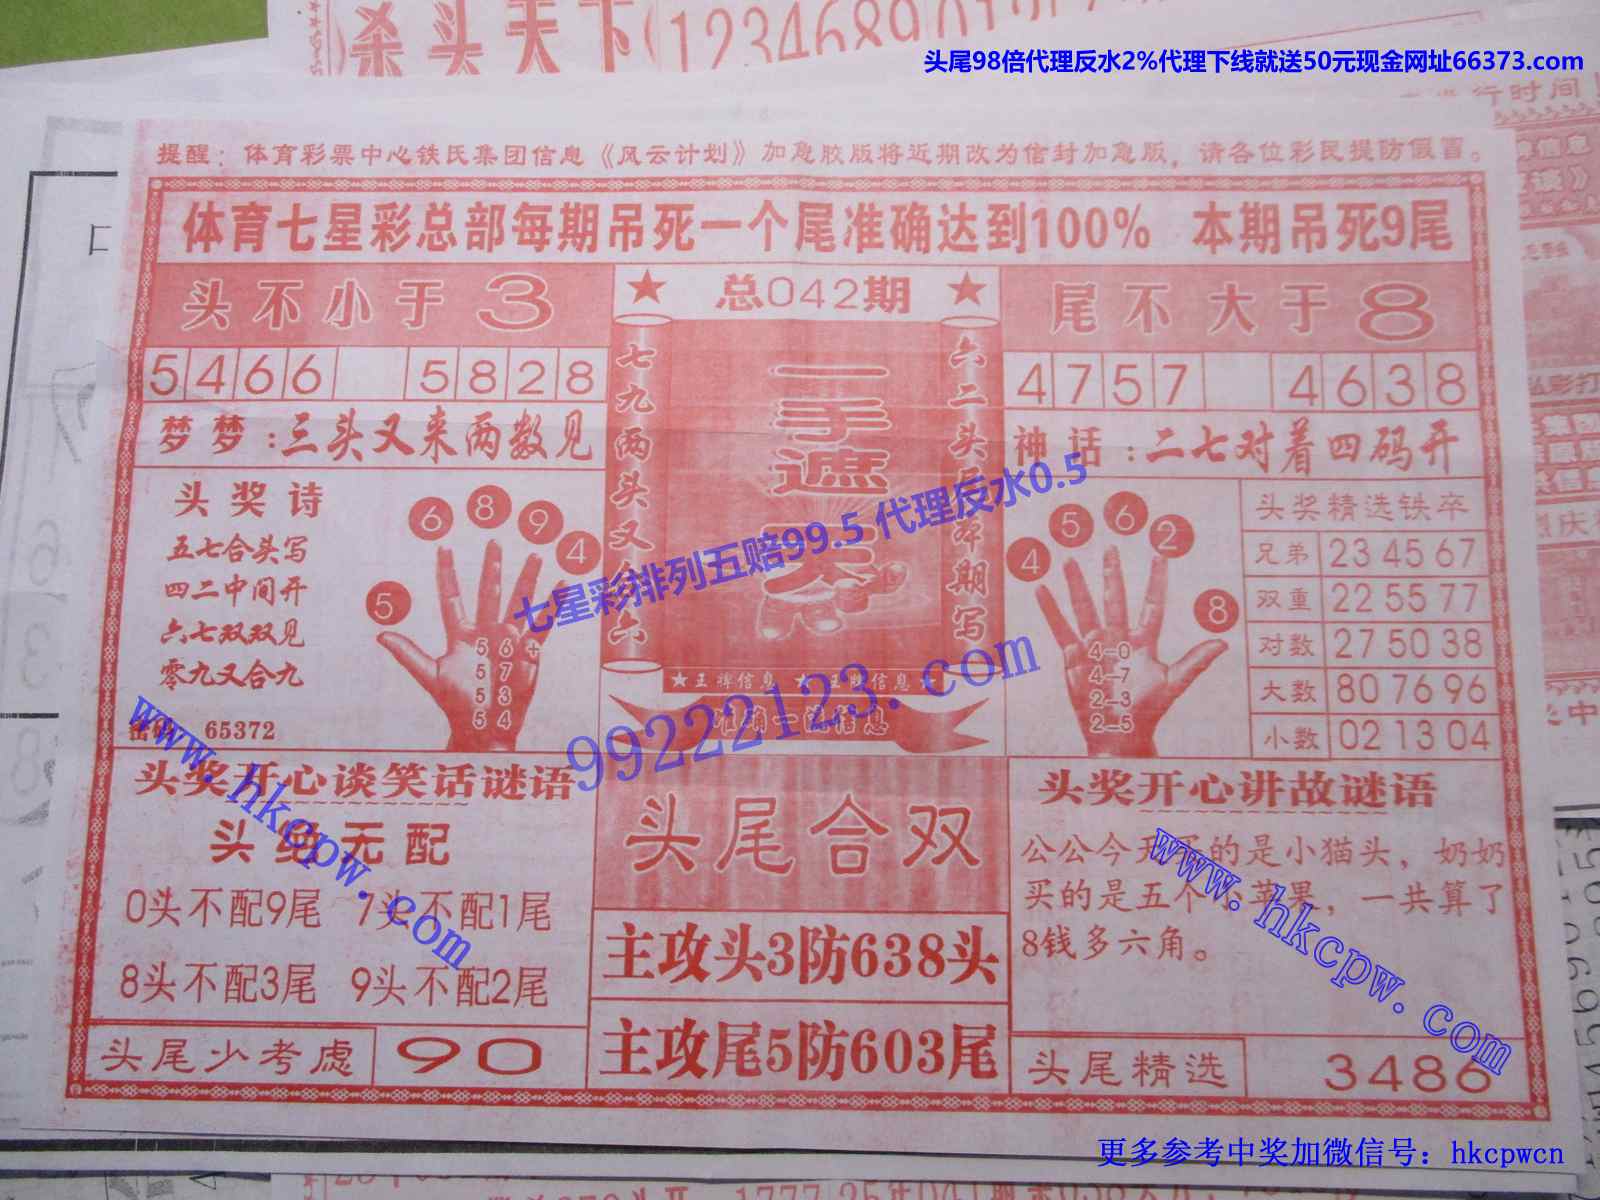 杀头天下
头尾98倍代理反水2%代理下线就送50元现金网址66373.com
提醒：体育彩票中心铁氏集团信息《风云计划》加急胶版将近期改为信封加急版，请各位彩民提防假冒。
体育七星彩总部每期吊死一个尾准确达到100% 本期吊死9尾
头不小于3
总042期
尾不大于8
5466 5828
4757 4638
梦梦：三头又来两数见
神话：二七对着四码开
七九两头又
六二头
期写
一手遮天
头奖诗
五七合头写
四二中间开
六七双双见
零九又合九
65372
5 6 8 9 4
5 6 +
5 7
5 3
5 4
4 5 6 2 8
4-0
4-7
2-3
2-5
头奖精选铁卒
兄弟 23 45 67
双重 22 55 77
对数 27 50 38
大数 80 76 96
小数 02 13 04
七星彩排列五赔99.5 代理反水0.5
99222123.com
www.hkcpw.com
头奖开心谈笑话谜语
头绝无配
0头不配9尾 7头不配1尾
8头不配3尾 9头不配2尾
头尾少考虑 90
头尾合双
主攻头3防638头
主攻尾5防603尾
头奖开心讲故谜语
公公今天买的是小猫头，奶奶
买的是五个小苹果，一共算了
8钱多六角。
www.hkcpw.com
头尾精选 3486
更多参考中奖加微信号：hkcpwcn